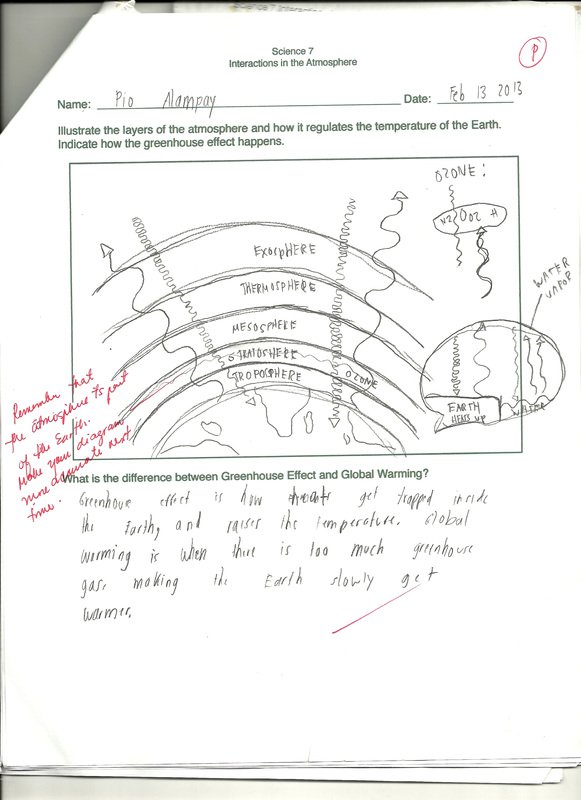 Science 7
Interactions in the Atmosphere
P
Name: Pio Alampay Date: Feb 13 2013
Illustrate the layers of the atmosphere and how it regulates the temperature of the Earth.
Indicate how the greenhouse effect happens.
OZONE:
EXOSPHERE
THERMOSPHERE
MESOSPHERE
STRATOSPHERE
TROPOSPHERE
OZONE
WATER
VAPOR
EARTH
HEATS UP
WATER
Remember that
the atmosphere is part
of the Earth.
Make your diagram
more accurate next
time.
What is the difference between Greenhouse Effect and Global Warming?
Greenhouse effect is how heats get trapped inside
the Earth, and raises the temperature. Global
warming is when there is too much greenhouse
gas, making the Earth slowly get
warmer.